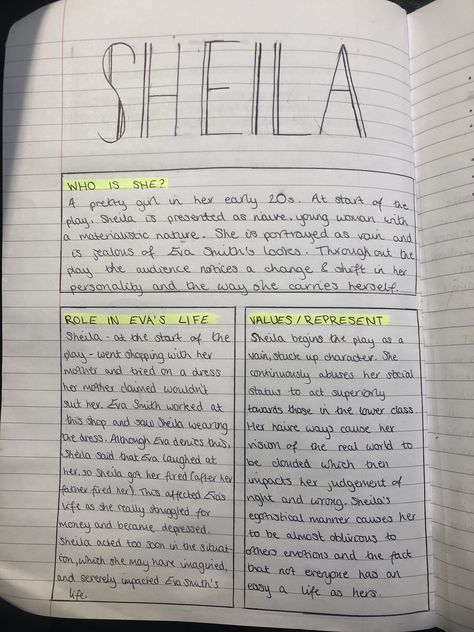 SHEILA
WHO IS SHE?
A pretty girl in her early 20s. At start of the
play, Sheila is presented as naive, young woman with
a materialistic nature. She is portrayed as vain and
is jealous of Eva Smith's looks. Throughout the
play the audience notices a change & shift in her
personality and the way she carries herself.
ROLE IN EVA'S LIFE
Sheila - at the start of the
play - went shopping with her
mother and tried on a dress
her mother claimed wouldn't
suit her. Eva Smith worked at
this shop and saw Sheila wearing
the dress. Although Eva denies this,
Sheila said that Eva laughed at
her, so Sheila got her fired (after her
father fired her). This affected Eva's
life as she really struggled for
money and became depressed.
Sheila acted too soon in the situat-
ion, which she may have imagined,
and severely impacted Eva Smith's
life.
VALUES/REPRESENT
Sheila begins the play as a
vain, stuck up character. She
continuously abuses her social
status to act superiorly
towards those in the lower class
Her naive ways cause her
vision of the real world to
be clouded which then
impacts her judgement of
right and wrong. Sheila's
egotistical manner causes her
to be almost oblivious to
others emotions and the fact
that not everyone has an
easy a life as hers.